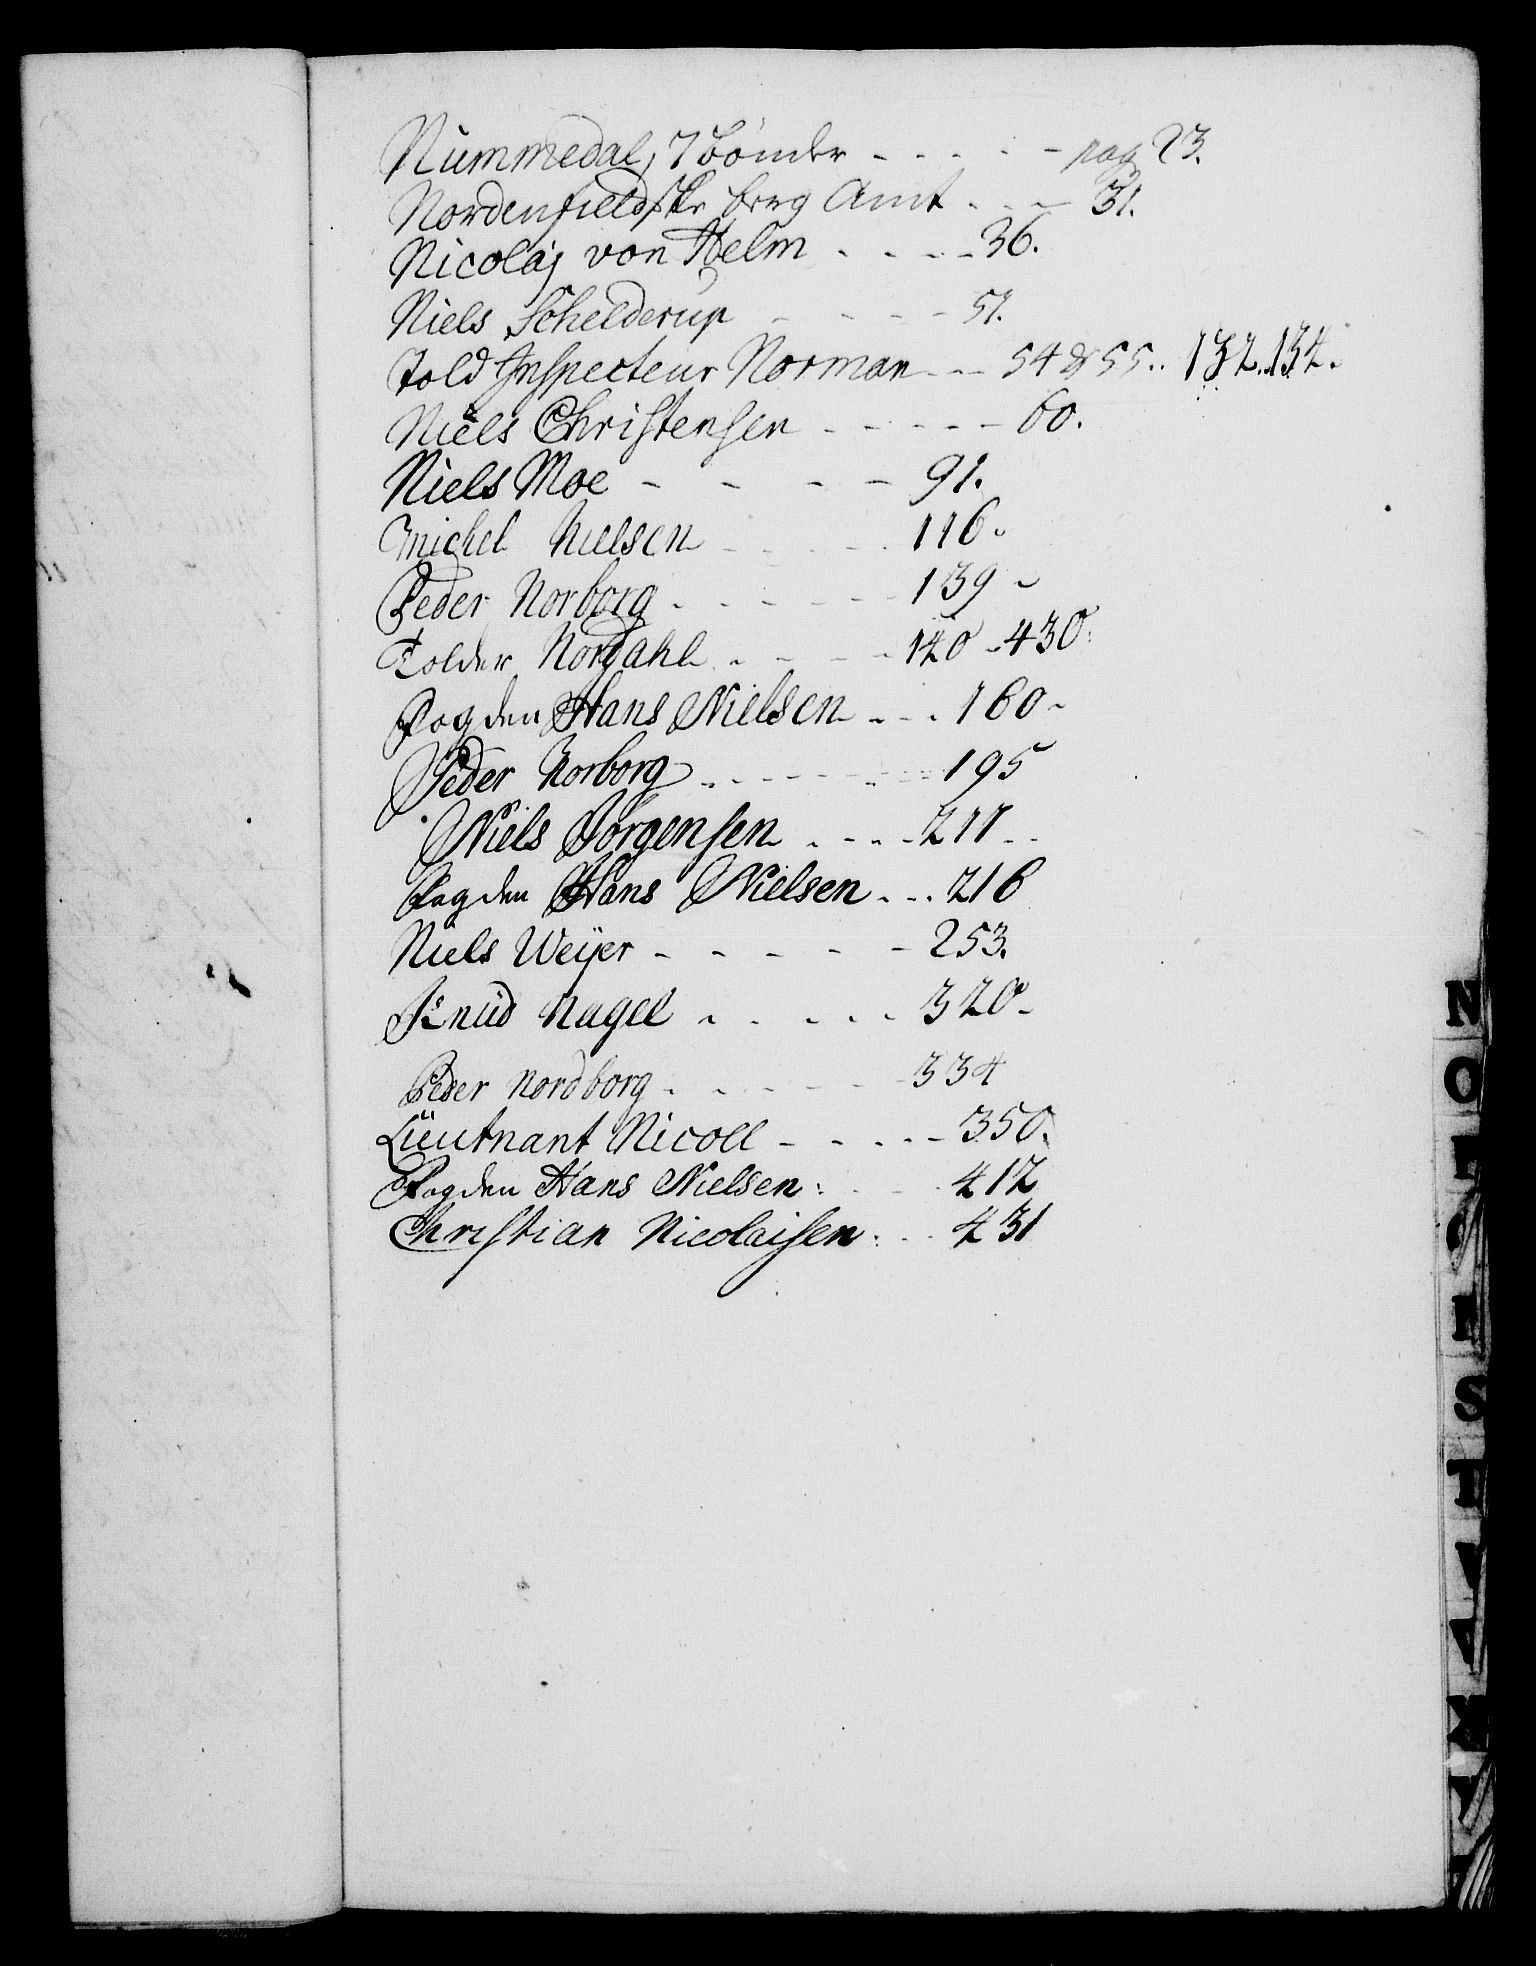 Nummedal, 7 bønder - - - - - pag 23.
Nordenfieldske berg Amt - - - 31.
Nicolaj von Helm - - - - 36.
Niels Schelderup - - - - 51.
Told Inspecteur Norman - - 54 & 55. 132. 134.
Niels Christensen - - - - - 60.
Niels Moe - - - - 91.
Michel Nielsen - - - - 116.
Peder Norborg - - - - - - 139 -
Tolder Nordahl - - - - 140 - 430.
Fogden Hans Nielsen - - - 160 -
Peder Norborg - - - - - 195
Niels Jørgensen - - - - 211 - -
Fogden Hans Nielsen - - - 216
Niels Weyer - - - - - 253.
Knud Nagel - - - - - 320 -
Peder Nordborg - - - - - 334
Lieutnant Nicoll - - - - - 350.
Fogden Hans Nielsen: - - 412
Christian Nicolaisen: - - 431
N
O
S
T
V
X
Y